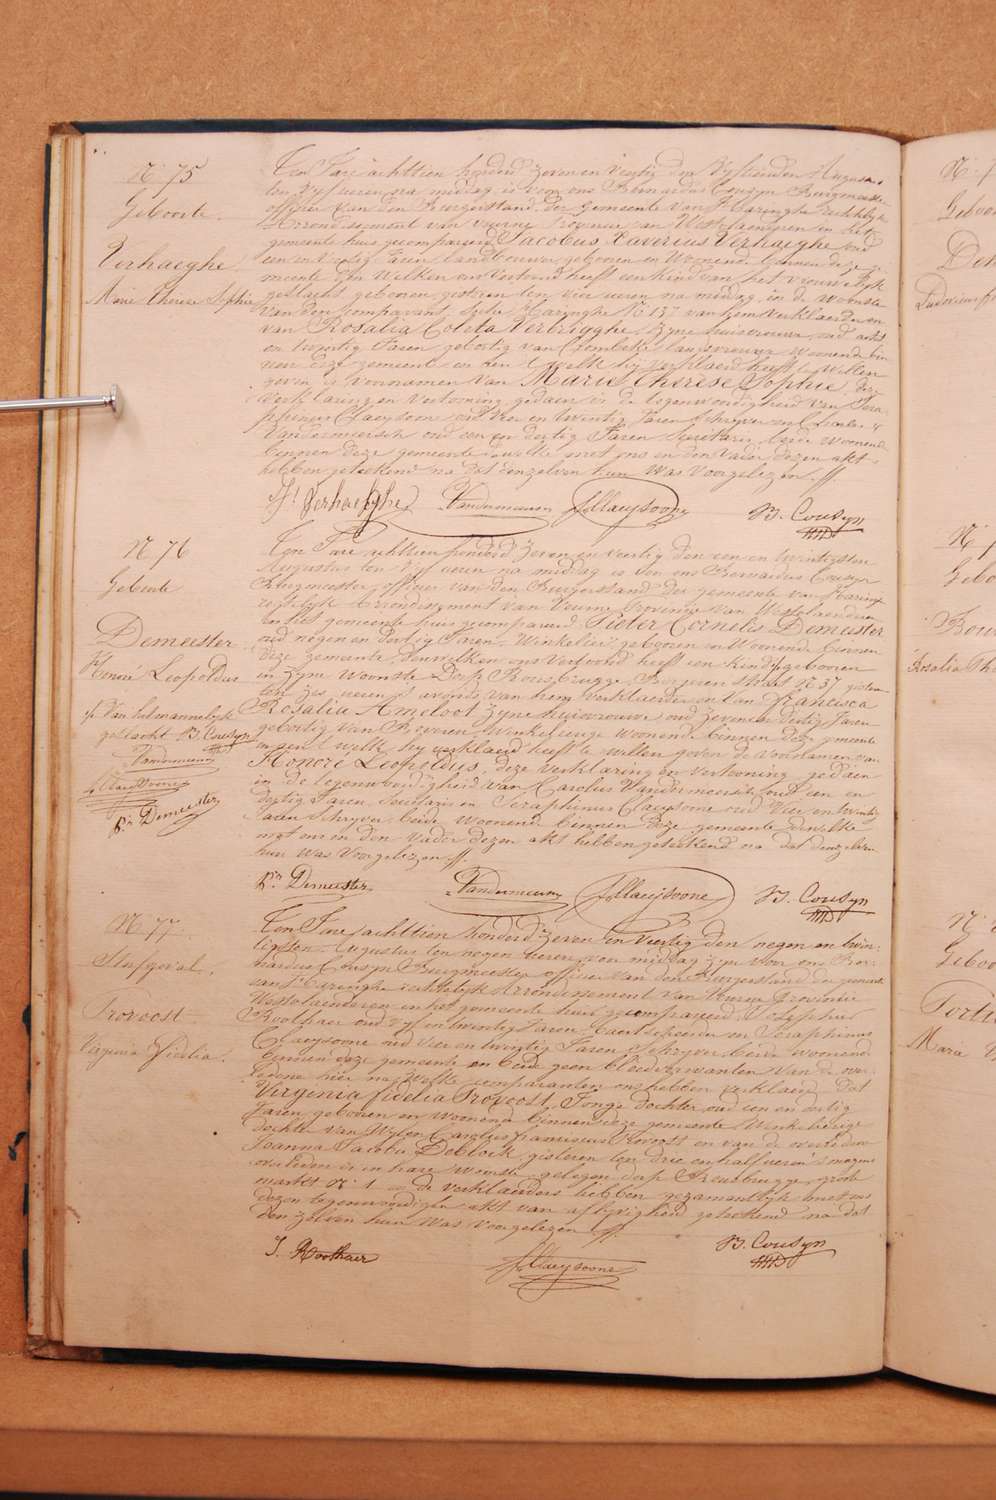 N.º 75
Geboorte.
Verhaeghe
Marie Therese Sophie
Ten Jare achttien honderd zeven en veertig den vyftienden Augusti,
ten vyf ueren na middag is voor ons Bernardus Cousyn Burgmeester
officier van den Burgerstand der gemeente van Haringhe rechtelyk
Arrondissement van Veurne Provincie van Westvlaenderen in het
gemeente huis gecompareerd Jacobus Xaverius Verhaeghe oud
een en veertig Jaren landbouwer geboren en Woonende binnen deze ge-
meente den Welken ons Vertoond heeft een kind van het vrouwelyk
geslacht geboren gisteren ten vier ueren na middag in de Woonste
van den comparant, Wyke Haringhe N.º 137 van hem Verklaerder en
van Rosalia Coleta Verbrigghe Zyne huisvrouw, oud acht
en twintig Jaren geboortig van landbouwerige Woonende bin-
nen deze gemeente en aen 't Welk hy verklaerd heeft te Willen
geven de Voornamen van Marie Therese Sophie, deze
verklaring en Vertooning gedaen in de tegenwoordigheid van Sera-
phinus Claeysoone oud Vier en twintig Jaren Schryver en Carolus
Vandermeersch oud een en dertig Jaren Secretaris, beide Woonende
binnen deze gemeente, dewelke met ons en den Vader dezen akt
hebben geteekend na dat denzelven hun Was Voorgelezen.
J. Verhaeghe Vandermeersch S. Claeysoone B. Cousyn
N.º 76
Geboorte
Demeester
Honoré Leopoldus
Van het mannelyk
geslacht B. Cousyn
Vandermeersch
Claeysoone
P.r Demeester
Ten Jare achttien honderd Zeven en Veertig den een en twintigsten
Augustus ten vyf ueren na middag is voor ons Bernardus Cousyn
Burgmeester officier van den Burgerstand der gemeente van Haringhe
rechtelyk Arrondissement van Veurne Provincie van Westvlaenderen
in het gemeente huis gecompareerd Pieter Cornelis Demeester
oud negen en dertig Jaren Winkelier geboren en Woonende binnen
deze gemeente, denwelken ons Vertoond heeft een Kind geboren
in Zyne Woonste Dorp Rousbrugge, straet N.º 37 gisteren
ten zes ueren 's avonds van hem Verklaerder en Van Francisca
Rosalia Ameloot Zyne huisvrouw oud Zeven en dertig Jaren
geboortig van Winkelierige Woonende binnen deze gemeente
en aen 't welk hy verklaerd heeft te willen geven de Voornamen van
Honoré Leopoldus, deze verklaring en vertooning gedaen
in de tegenwoordigheid van Carolus Vandermeersch oud een en
dertig Jaren, Secretaris en Seraphinus Claeysoone oud Vier en twintig
Jaren Schryver, beide Woonende binnen deze gemeente, dewelke
met ons en den Vader dezen akt hebben geteekend na dat denzelven
hun Was Voorgelezen.
P.r Demeester Vandermeersch S. Claeysoone B. Cousyn
N.º 77
Sterfgeval.
Provoost
Virginia Fidelia.
Ten Jare achttien honderd zeven en Veertig den negen en twin-
tigsten Augustus ten negen ueren voor middag zyn voor ons Ber-
nardus Cousyn Burgmeester officier van den Burgerstand der gemeente
van Haringhe rechtelyk Arrondissement van Veurne Provincie
Westvlaenderen in het gemeente huis gecompareerd Josephus
Roothaer oud vyf en twintig Jaren en Seraphinus
Claeysoone oud Vier en twintig Jaren Schryver, beide woonende
binnen deze gemeente en beide geen bloedverwanten van de over-
ledene hier na, Welke comparanten ons hebben verklaerd dat
Virginia fidelia Provoost, Jonge dochter oud een en dertig
Jaren, geboren en woonende binnen deze gemeente Winkelierige
dochter van Wylen Carolus franciscus Provoost en van de overledene
Joanna Jacoba Deblock, gisteren ten drie en half ueren 's morgens
overleden is in hare Woonste gelegen dorp Rousbrugge, groote
markt N.º 1 en de verklaerders hebben gezamentlyk met ons
dezen tegenwoordigen akt van aflyvigheid geteekend na dat
denzelven hun Was Voorgelezen.
J. Roothaer S. Claeysoone B. Cousyn